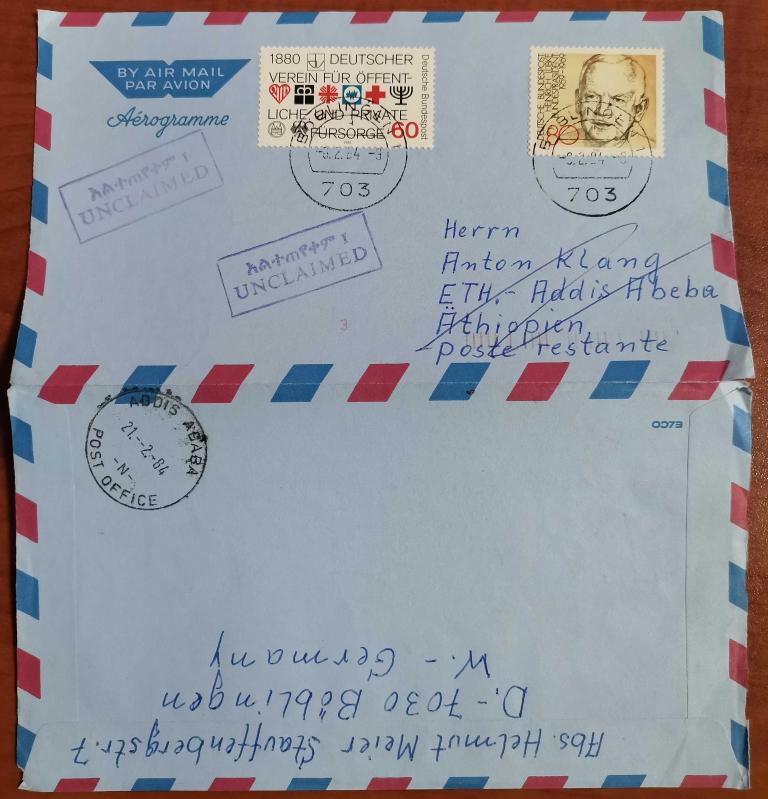 BY AIR MAIL
PAR AVION
Aérogramme
1880 DEUTSCHER
VEREIN FÜR ÖFFENT-
LICHE UND PRIVATE
FÜRSORGE 60
Deutsche Bundespost
DEUTSCHE BUNDESPOST
1959-1969
80
-8.2.84-8
703
-8.2.84-8
703
አልተጠየቀም ።
UNCLAIMED
አልተጠየቀም ።
UNCLAIMED
Herrn
Anton Klang
ETH.- Addis Abeba
Äthiopien
poste restante
3
ELCO
ADDIS ABABA
21.-2.-84
-N-
POST OFFICE
Abs. Helmut Meier Stauffenbergstr. 7
D.-7030 Böblingen
W.- Germany